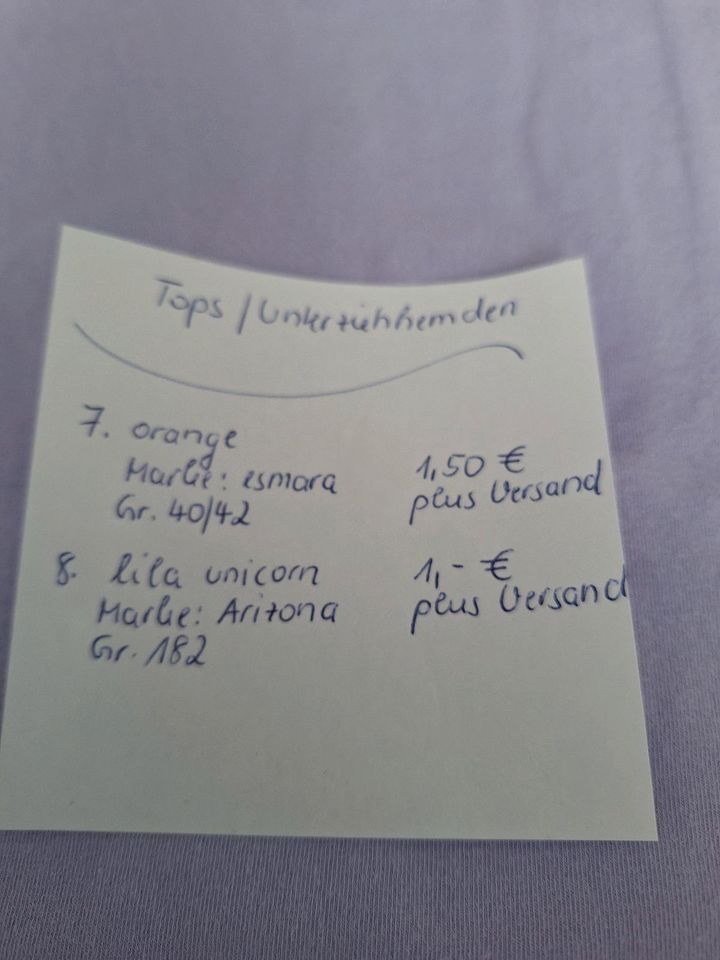 Tops / Unterziehhemden
7. orange
Marke: esmara 1,50 €
Gr. 40/42 plus Versand
8. lila unicorn 1,- €
Marke: Arizona plus Versand
Gr. 182